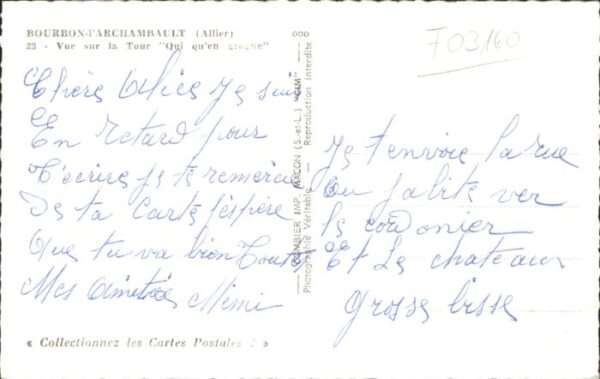 BOURBON-l'ARCHAMBAULT (Allier)
22 - Vue sur la Tour "Qui qu'en grogne"
000
F03160
Chère Alice Je suis
En retard pour
T'écrire Je te remercie
De ta Carte J'espère
Que tu va bien Toute
Mes Amitiés Mimi
COMBIER IMP. MACON (S.-et-L.) "CIM"
Photographie Véritable - Reproduction interdite
Je t'envoie la rue
Ou J'abite ver
le cordonier
Et Le chateau
grosse bisse
« Collectionnez les Cartes Postales